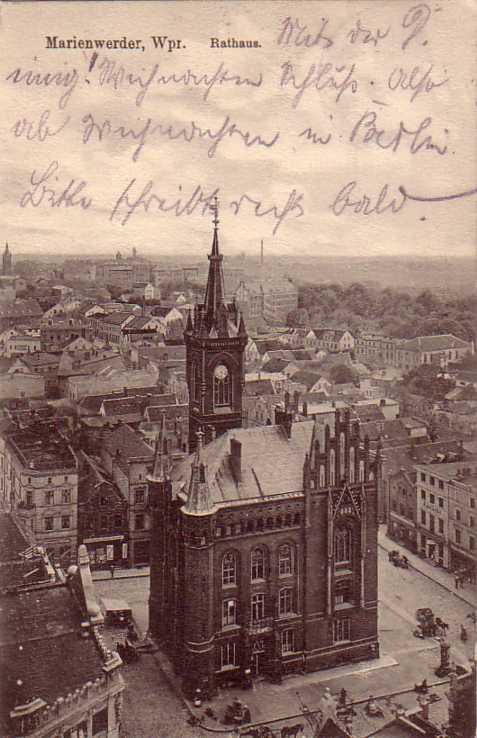 Marienwerder, Wpr. Rathaus. Mit der
! Weihnachten Schluß. Also
ab Weihnachten in Berlin.
Bitte schreibt recht bald.